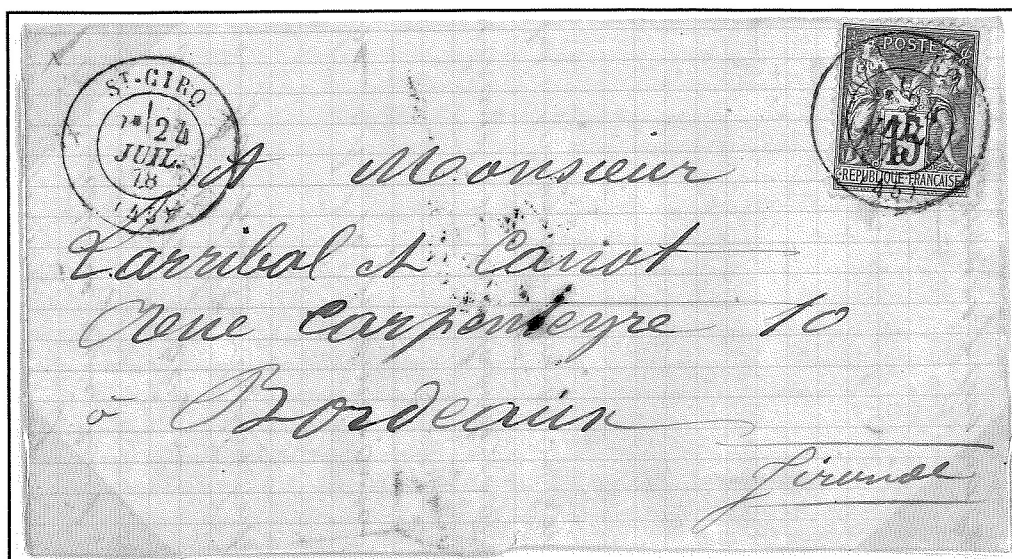 ST-CIRQ
24
JUIL.
78
POSTE
15
RÉPUBLIQUE FRANÇAISE
A Monsieur
Larribal et
Rue Carpenteyre 10
à Bordeaux
Gironde